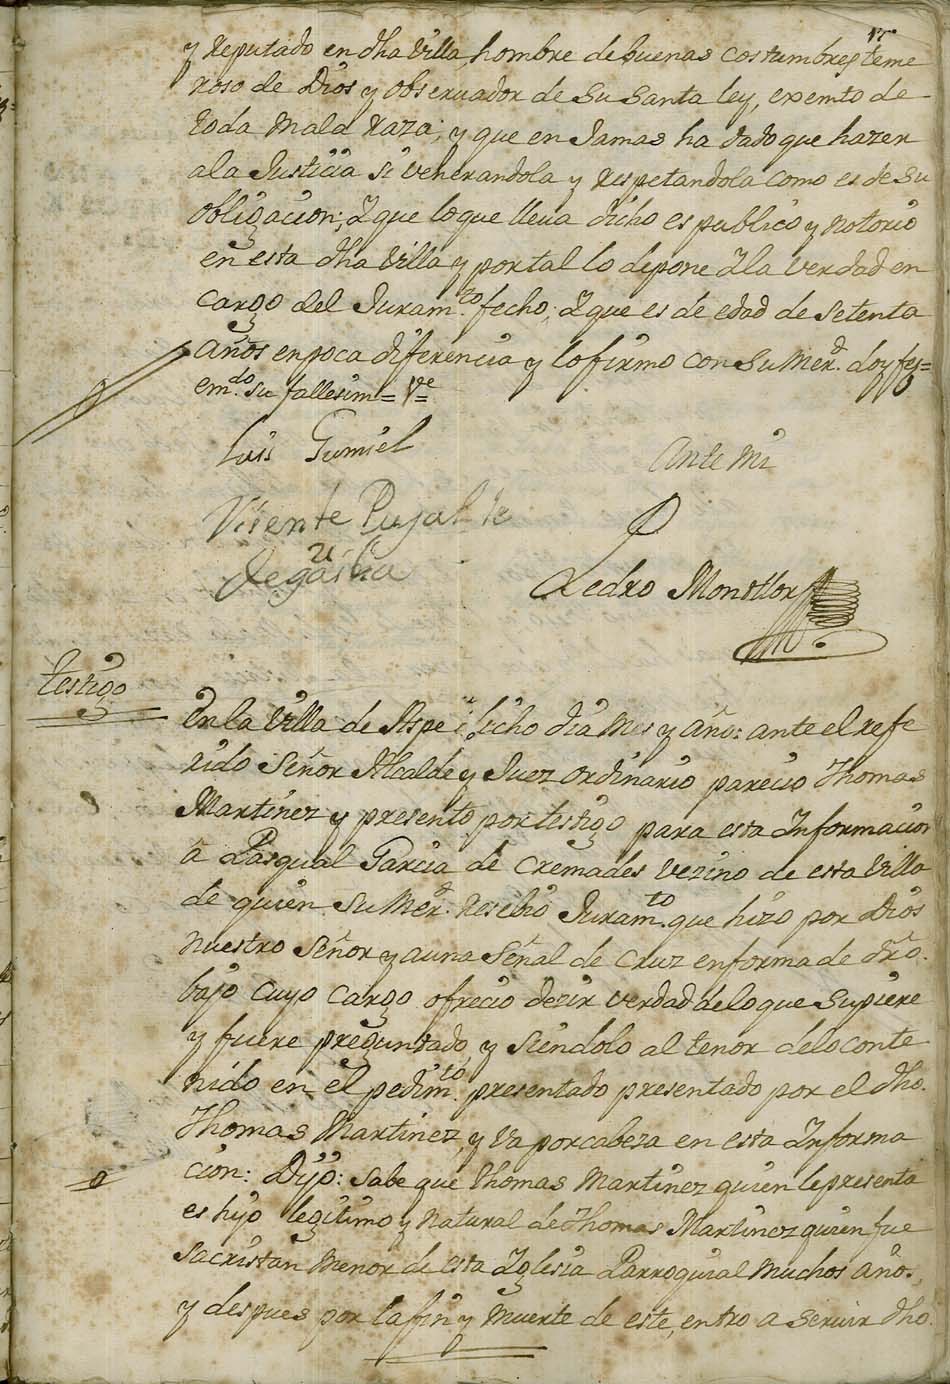 y reputado en dha Villa, hombre de buenas costumbres, teme
roso de Dios y observador de su santa ley, exemto de
toda mala raza; y que en Jamas ha dado que hazer
a la Justicia si venerandola y respetandola como es de su
obligacion; Y que lo que lleva dicho es publico y notorio
en esta dha Villa y por tal lo depone Y la verdad en
cargo del Juram.to fecho; Y que es de edad de setenta
años en poca diferencia y lo firmo con su Mer.d doy fe=
em.do su fallesim= V.e=
Luis Gumiel
Ante Mi
Visente Pujalte
de
Pedro Montllor
testigo
En la Villa de Aspe dicho dia Mes y año: ante el refe
rido Señor Alcalde y Juez ordinario parecio Thomas
Martinez y presento por testigo para esta Informacion
a Pasqual Garcia de Cremades vezino de esta Villa
de quien su Mer.d resebio Juram.to que hizo por Dios
nuestro Señor y a una Señal de Cruz en forma de dro.
bajo cuyo cargo ofrecio dezir verdad de lo que supiere
y fuere preguntado, y siendolo al tenor de lo conte
nido en el pedim.to presentado presentado por el dho.
Thomas Martinez, y va por cabeza en esta Informa
cion: Dijo: Sabe que Thomas Martinez quien le presenta
es hijo legitimo y natural de Thomas Martinez quien fue
Sacristan Menor de esta Yglesia Parroquial muchos años,
y despues por la fin y muerte de este, entro a servir dho.